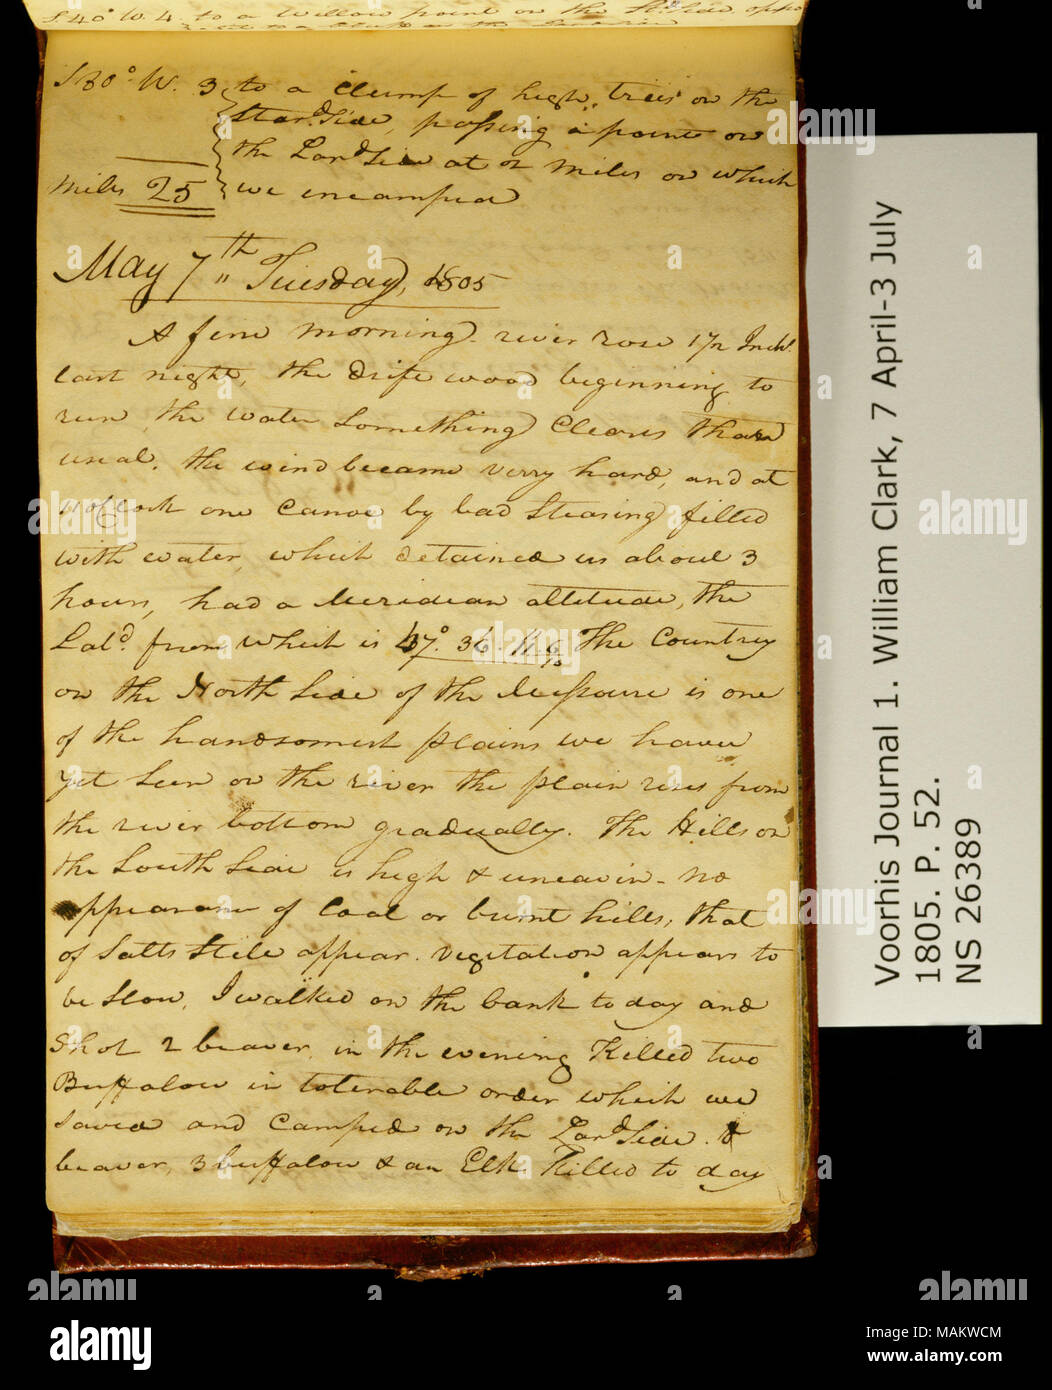 S 40° W. 4. to a Willow point on the Stbd Side oppo
S 80° W. 3 to a Clump of high trees on the
Stard. Side, passing a point on
the Lard Side at 2 miles on which
miles 25 we incamped
May 7th Tuesday, 1805
A fine morning river rose 1 1/2 Inch.
last night, the drift wood beginning to
run the water Something Clearer than
usial. the wind became verry hard, and at
11 oClock one Canoe by bad Stearing filled
with water, which detained us about 3
hours, had a Meridian altitude, the
Latd. from which is 47°. 36. 11. 6/10 The Countrey
on the North Side of the Missouri is one
of the handsomest plains we have
yet Seen on the river the plain rises from
the river bottom gradually. The Hills on
the South Side is high & uneavin. no
appearance of Coal or burnt hills, that
of Salts Stile appear. vegitation appears to
be Slow, I walked on the bank to day and
Shot 2 beaver, in the evening Killed two
Buffalow in tolerable order which we
Saved and Camped on the Lard Side.
beaver, 3 buffalow & an Elk Killed to day
Voorhis Journal 1. William Clark, 7 April-3 July
1805. P. 52.
NS 26389
alamy
a
alamy
Image ID: MAKWCM
www.alamy.com